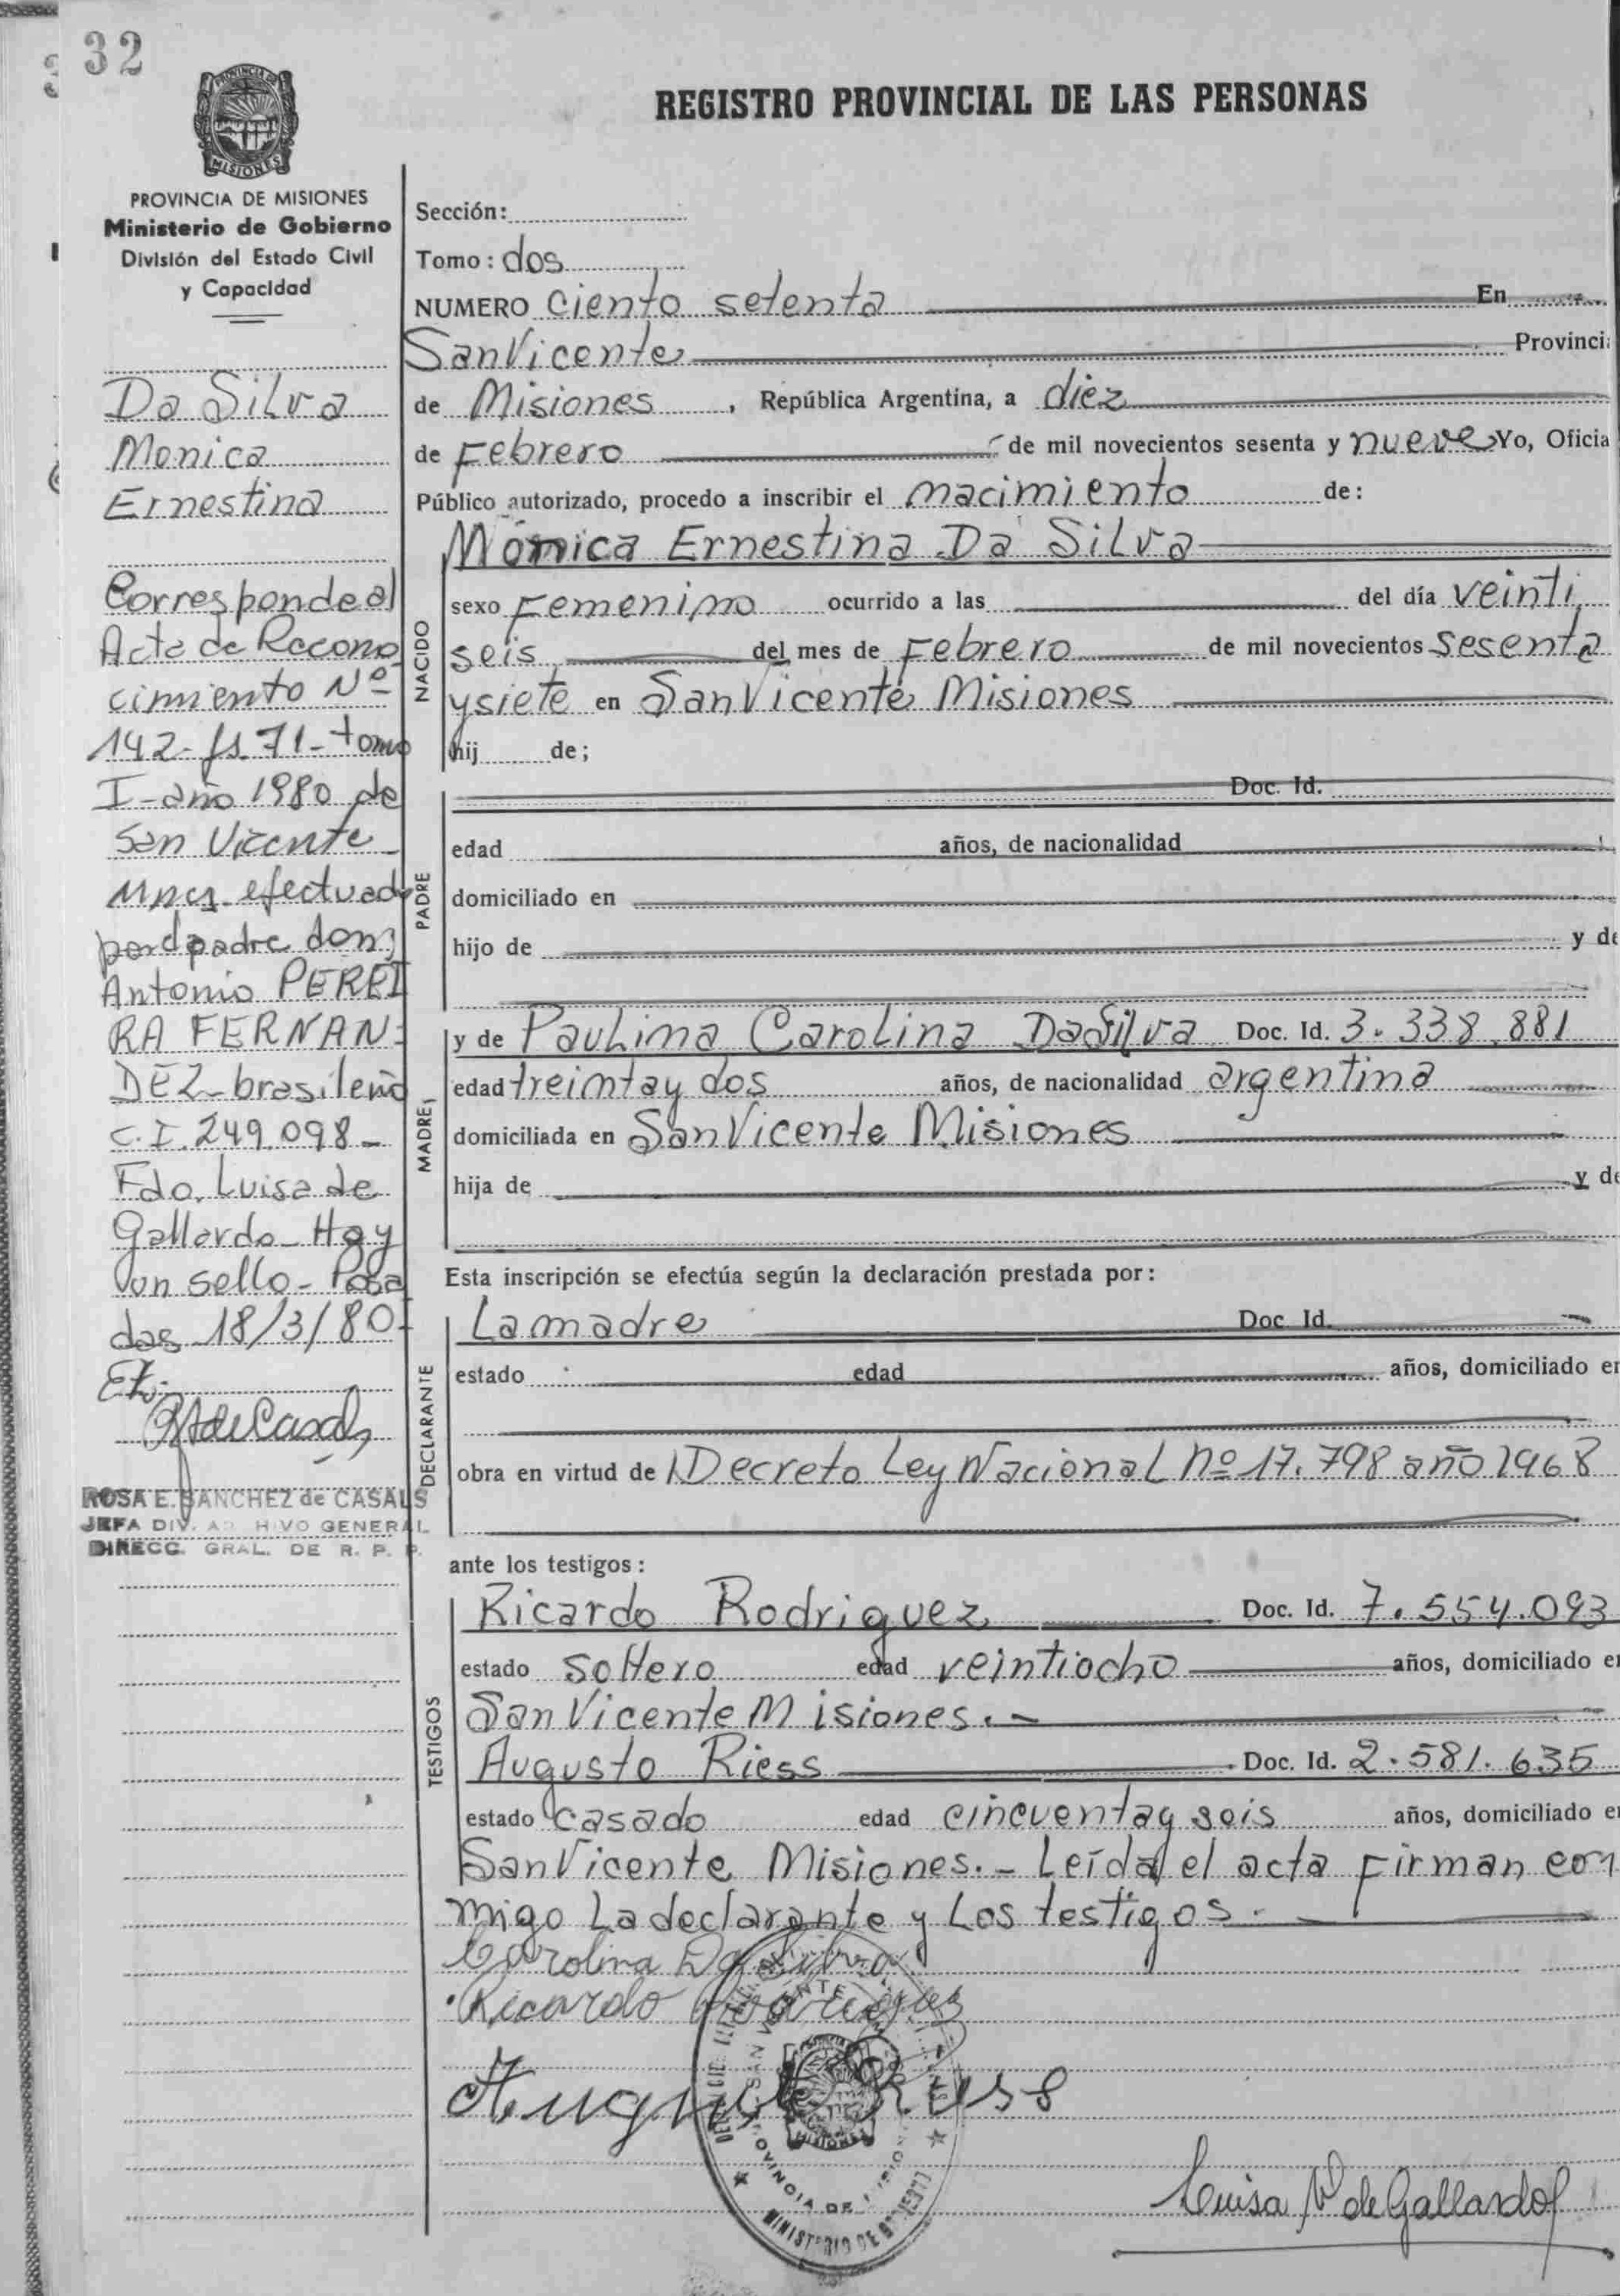 32
PROVINCIA DE
MISIONES
REGISTRO PROVINCIAL DE LAS PERSONAS
PROVINCIA DE MISIONES
Ministerio de Gobierno
División del Estado Civil
y Capacidad
Da Silva
Monica
Ernestina
Corresponde al
Acta de Recono
cimiento Nº
142- fs. 71- tomo
I- año 1980 de
San Vicente
Mnes. efectuado
por el padre don;
Antonio PEREI
RA FERNAN-
DEZ- brasileño
C.I. 249.098-
Fdo. Luisa de
Gallardo- Hay
un sello- Posa
das 18/3/80-
ROSA E. SANCHEZ de CASALS
JEFA DIV. AR HIVO GENERAL
DIRECC. GRAL. DE R. P. P.
Sección:
Tomo: dos
NUMERO ciento setenta En
San Vicente Provinci
de Misiones, República Argentina, a diez
de Febrero de mil novecientos sesenta y nueve Yo, Oficia
Público autorizado, procedo a inscribir el nacimiento de:
Mónica Ernestina Da Silva
NACIDO
sexo Femenino ocurrido a las del día veinti
seis del mes de Febrero de mil novecientos sesenta
y siete en San Vicente Misiones
hij de;
PADRE
Doc. Id.
edad años, de nacionalidad
domiciliado en
hijo de y de
MADRE
y de Paulina Carolina Da Silva Doc. Id. 3.338.881
edad treinta y dos años, de nacionalidad argentina
domiciliada en San Vicente Misiones
hija de y de
Esta inscripción se efectúa según la declaración prestada por:
DECLARANTE
La madre Doc. Id.
estado edad años, domiciliado en
obra en virtud de Decreto Ley Nacional Nº 17.798 año 1968
ante los testigos:
TESTIGOS
Ricardo Rodriguez Doc. Id. 7.554.093
estado soltero edad veintiocho años, domiciliado en
San Vicente Misiones.-
Augusto Riess Doc. Id. 2.581.635
estado casado edad cincuenta y seis años, domiciliado en
San Vicente Misiones.- Leída el acta firman con
migo La declarante y Los testigos.-
Carolina Da Silva
Ricardo Rodriguez
Augusto Riess
SAN VICENTE
MISIONES
MINISTERIO DE
Luisa V de Gallardo